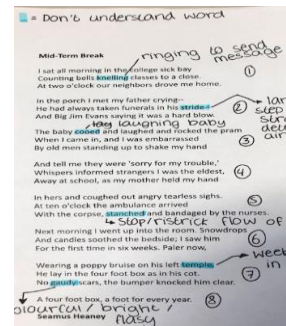 = Don't understand word
Mid-Term Break
ringing to send
message
I sat all morning in the college sick bay
Counting bells knelling classes to a close.
At two o'clock our neighbors drove me home.
1
In the porch I met my father crying--
He had always taken funerals in his stride--
And Big Jim Evans saying it was a hard blow.
2
step
air
laughing baby
The baby cooed and laughed and rocked the pram
When I came in, and I was embarrassed
By old men standing up to shake my hand
3
And tell me they were 'sorry for my trouble,'
Whispers informed strangers I was the eldest,
Away at school, as my mother held my hand
4
In hers and coughed out angry tearless sighs.
At ten o'clock the ambulance arrived
With the corpse, stanched and bandaged by the nurses.
5
stop/ristrict flow of
Next morning I went up into the room. Snowdrops
And candles soothed the bedside; I saw him
For the first time in six weeks. Paler now,
6
Wearing a poppy bruise on his left temple,
He lay in the four foot box as in his cot.
No gaudy scars, the bumper knocked him clear.
7
in
A four foot box, a foot for every year.
8
olourful/bright/
Seamus Heaney